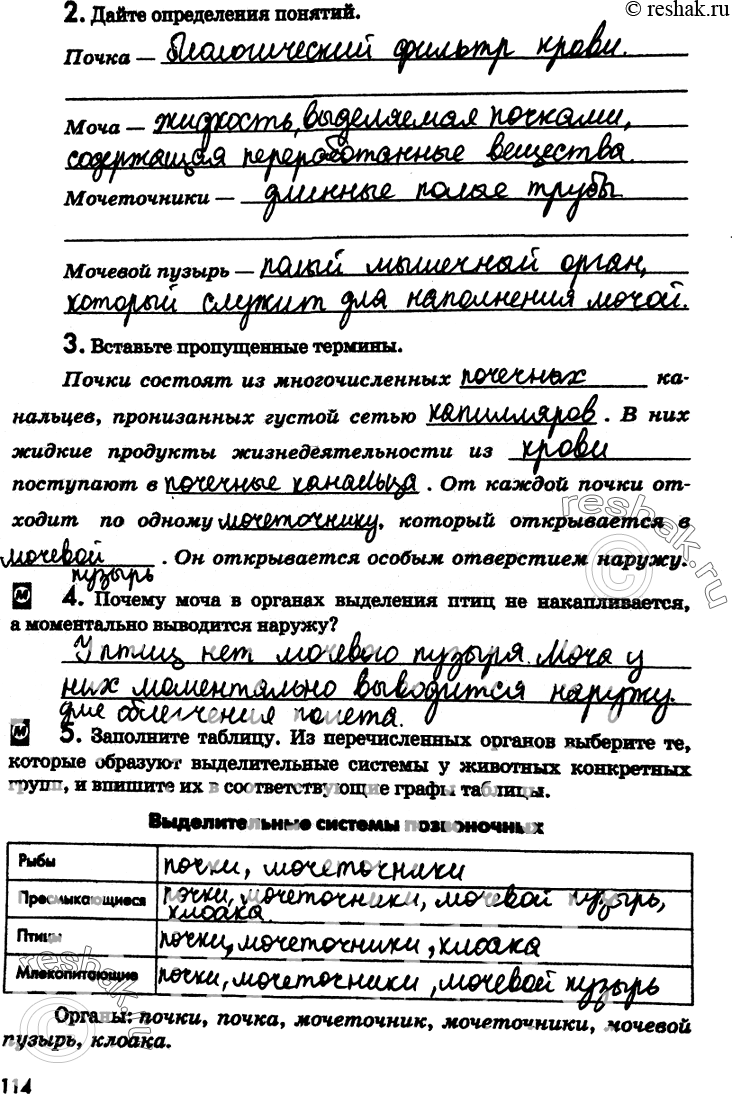 © reshak.ru
2. Дайте определения понятий.
Почка — Биологический фильтр крови.
Моча — жидкость, выделяемая почками,
содержащая переработанные вещества.
Мочеточники — длинные полые трубы
Мочевой пузырь — полый мышечный орган,
который служит для наполнения мочой.
3. Вставьте пропущенные термины.
Почки состоят из многочисленных почечных ка-
нальцев, пронизанных густой сетью капилляров. В них
жидкие продукты жизнедеятельности из крови
поступают в почечные канальца. От каждой почки от-
ходит по одному мочеточнику, который открывается в
мочевой . Он открывается особым отверстием наружу.
пузырь
М 4. Почему моча в органах выделения птиц не накапливается,
а моментально выводится наружу?
У птиц нет мочевого пузыря. Моча у
них моментально выводится наружу.
для облегчения полета.
М 5. Заполните таблицу. Из перечисленных органов выберите те,
которые образуют выделительные системы у животных конкретных
групп, и впишите их в соответствующие графы таблицы.
Выделительные системы позвоночных
Рыбы почки, мочеточники
Пресмыкающиеся почки, мочеточники, мочевой пузырь,
клоака.
Птицы почки, мочеточники, клоака
Млекопитающие почки, мочеточники, мочевой пузырь
Органы: почки, почка, мочеточник, мочеточники, мочевой
пузырь, клоака.
114
reshak.ru
©
reshak.ru
©